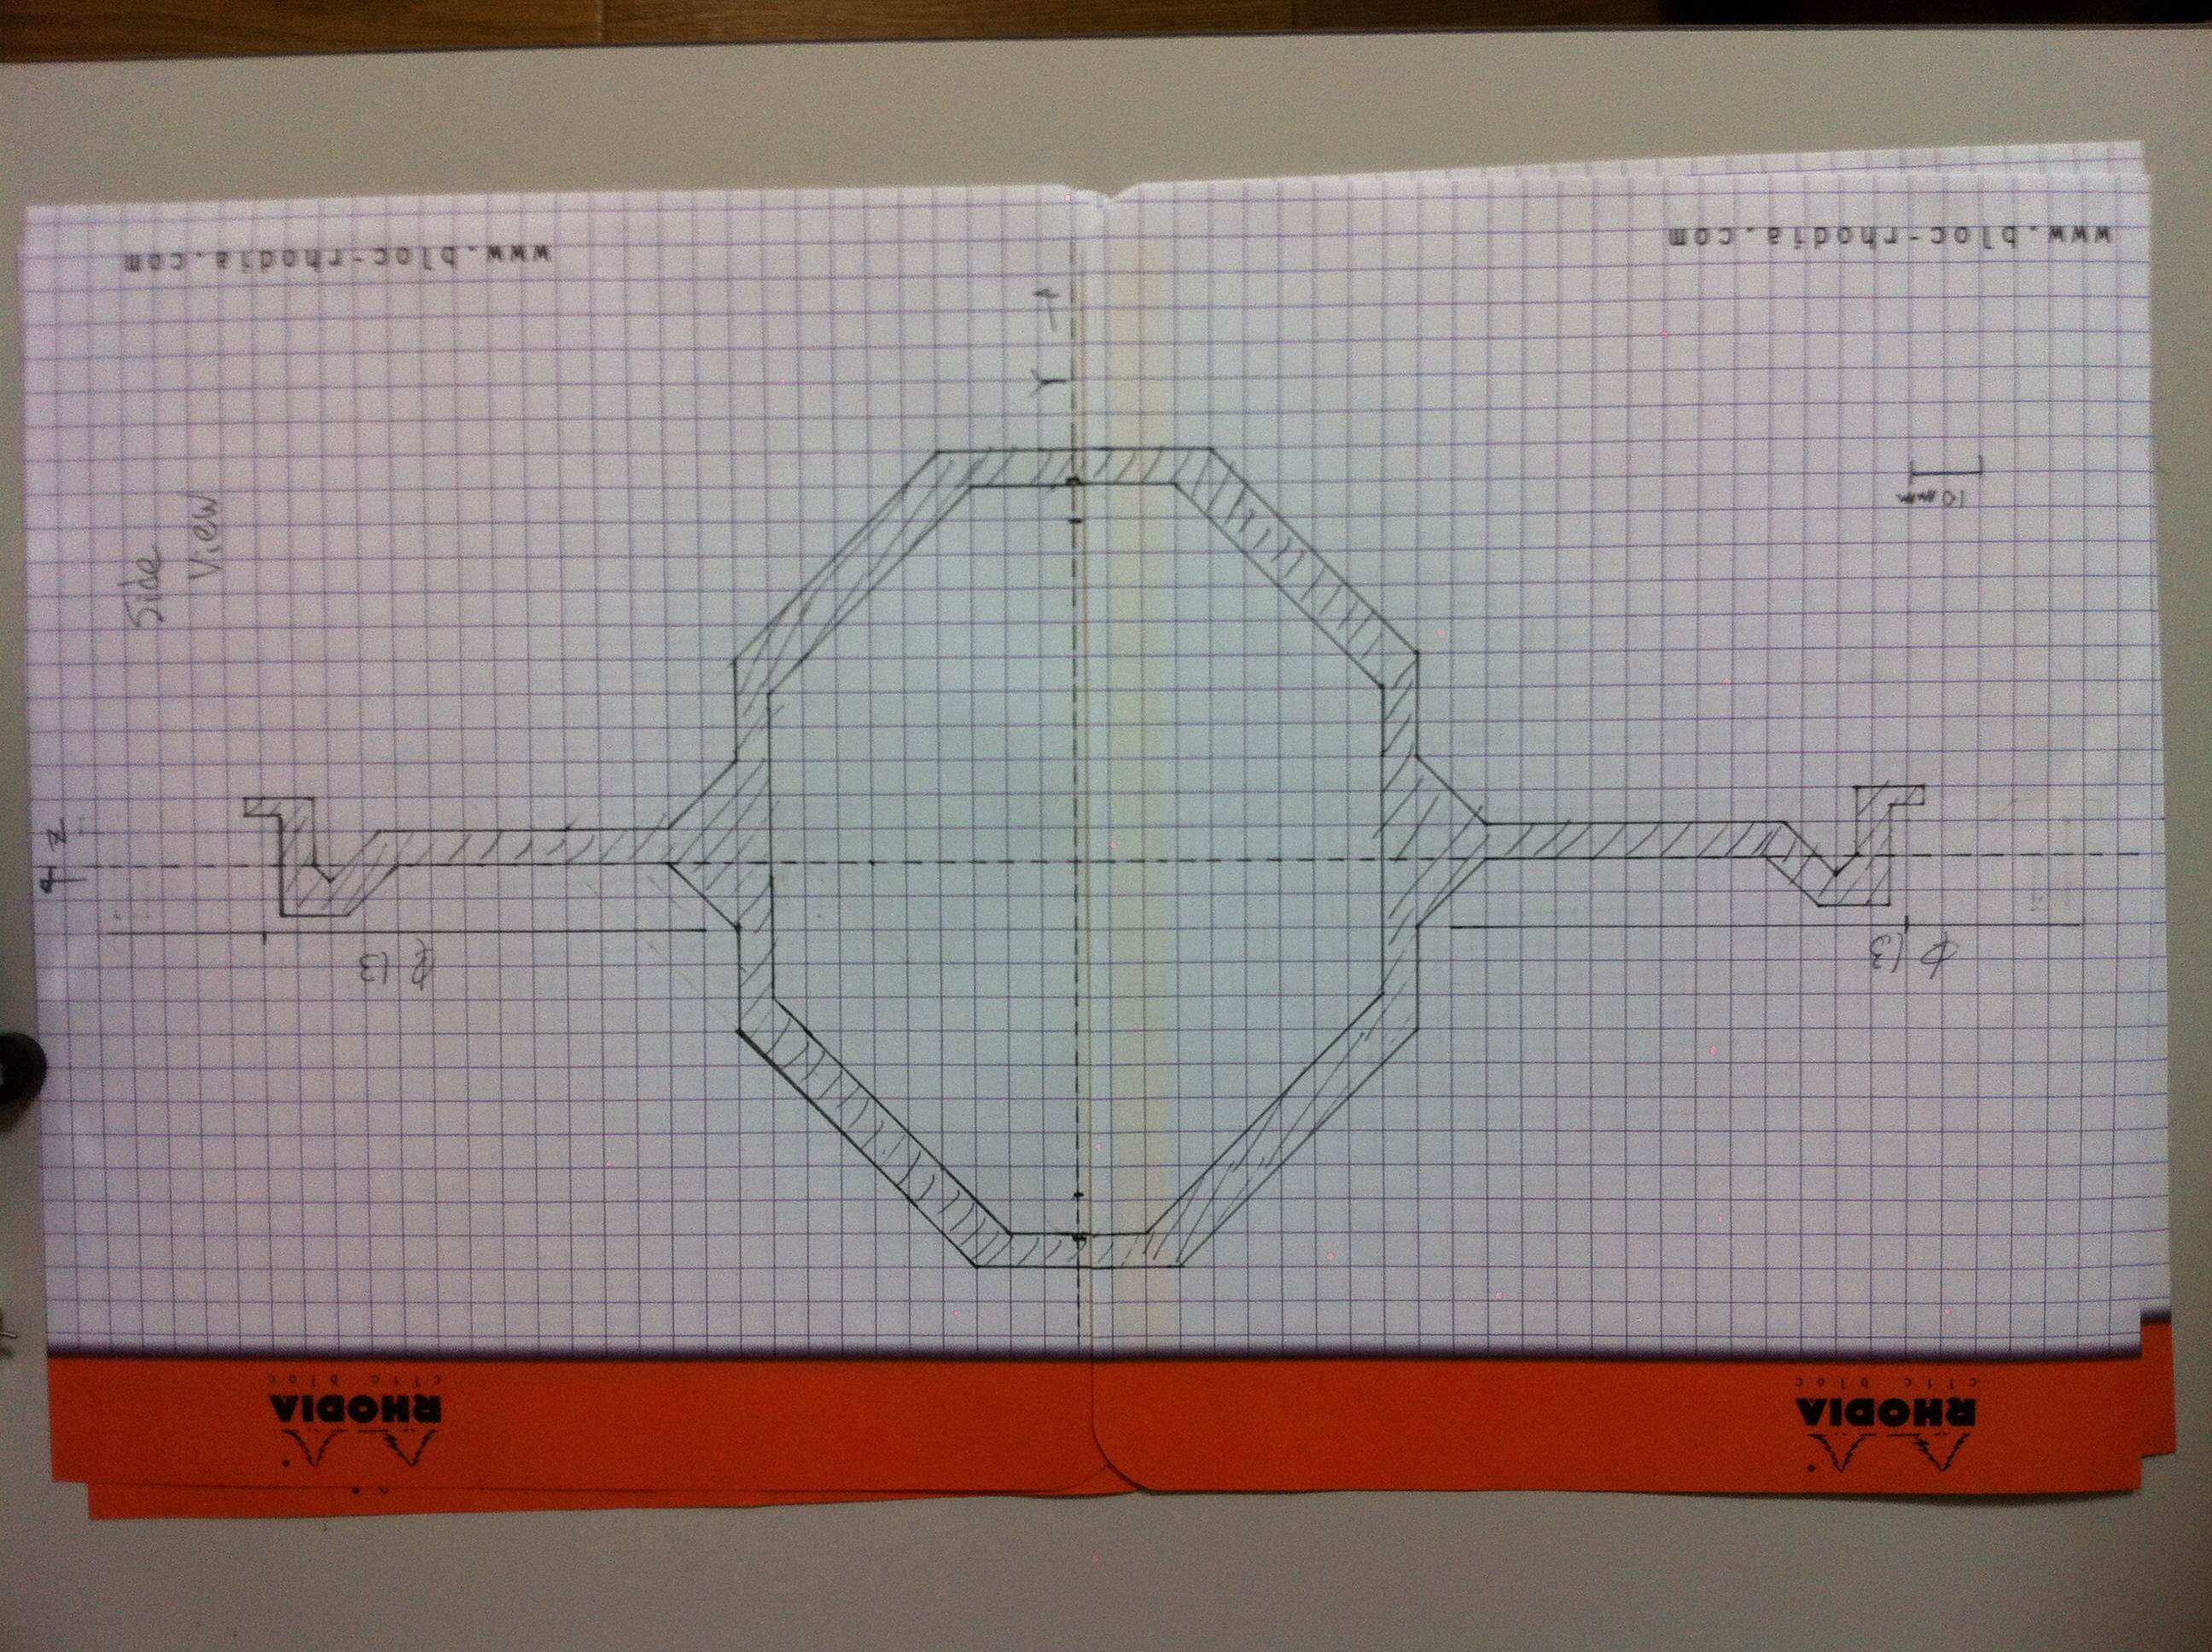 RHODIA
clic bloc
RHODIA
clic bloc
ϕ 13
ϕ 13
Z
Side
View
10mm
Y
www.bloc-rhodia.com
www.bloc-rhodia.com